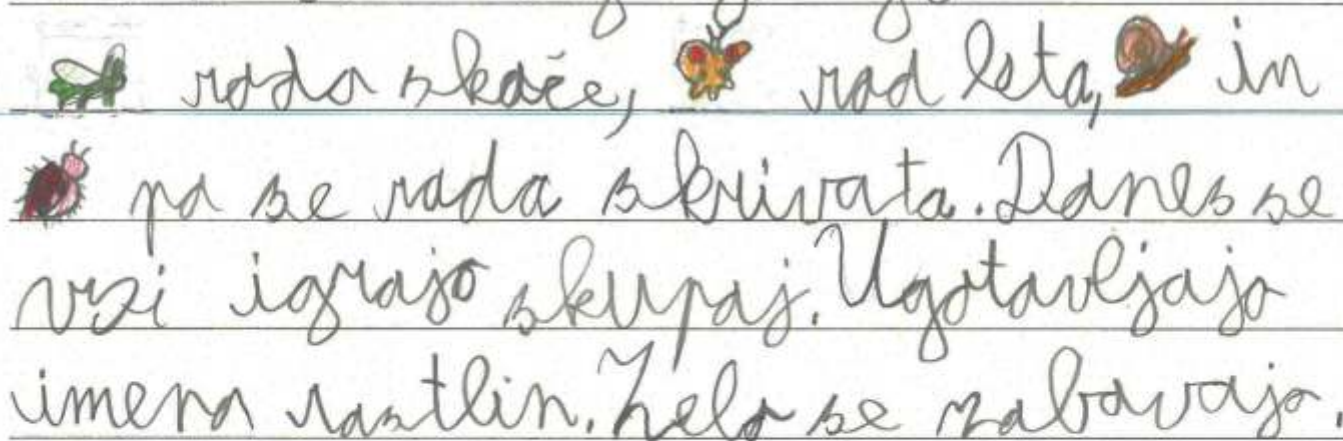 rada skače, rad leta, in
pa se rada skrivata. Danes se
vsi igrajo skupaj. Ugotavljajo
imena rastlin. Zelo se zabavajo.